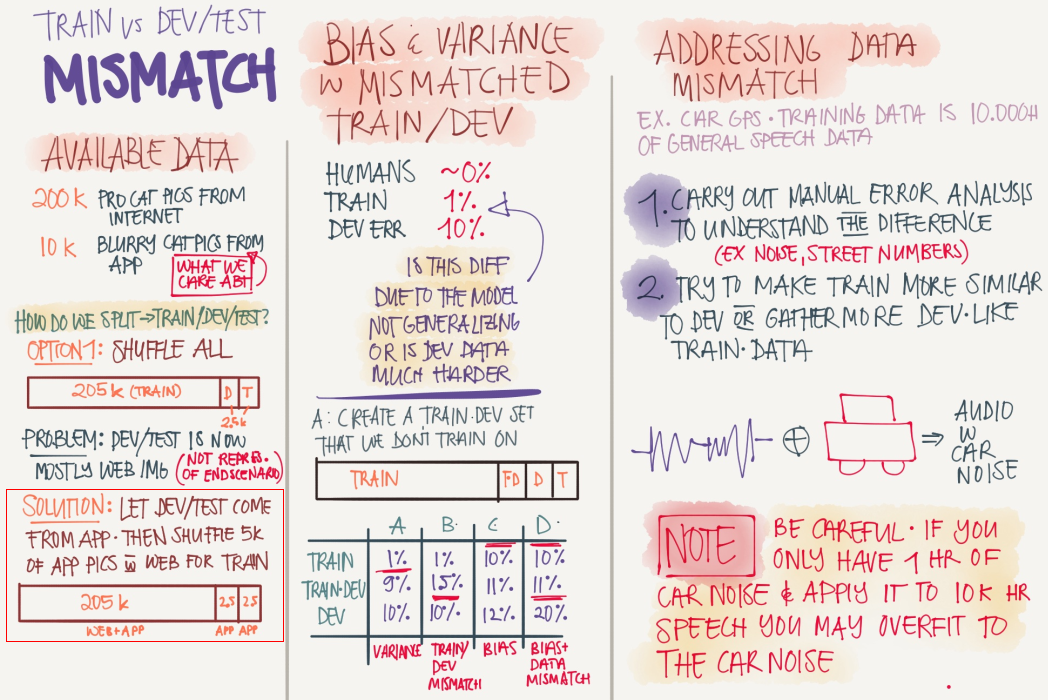 TRAIN VS DEV/TEST
MISMATCH
AVAILABLE DATA
200 K PRO CAT PICS FROM
INTERNET
10 K BLURRY CAT PICS FROM
APP
WHAT WE
CARE ABT
HOW DO WE SPLIT → TRAIN/DEV/TEST?
OPTION 1: SHUFFLE ALL
205 K (TRAIN) D T
2.5K
PROBLEM: DEV/TEST IS NOW
MOSTLY WEB IMG (NOT REPRES.
OF END SCENARIO)
SOLUTION: LET DEV/TEST COME
FROM APP. THEN SHUFFLE 5K
OF APP PICS W WEB FOR TRAIN
205 K 2.5 2.5
WEB+APP APP APP
BIAS & VARIANCE
W MISMATCHED
TRAIN/DEV
HUMANS ~0%
TRAIN 1%
DEV ERR 10%
IS THIS DIFF
DUE TO THE MODEL
NOT GENERALIZING
OR IS DEV DATA
MUCH HARDER
A: CREATE A TRAIN-DEV SET
THAT WE DON'T TRAIN ON
TRAIN FD D T
A B. C D.
TRAIN 1% 1% 10% 10%
TRAIN-DEV 9% 1.5% 11% 11%
DEV 10% 10% 12% 20%
VARIANCE TRAIN/ BIAS BIAS+
DEV DATA
MISMATCH MISMATCH
ADDRESSING DATA
MISMATCH
EX. CAR GPS · TRAINING DATA IS 10.000H
OF GENERAL SPEECH DATA
1. CARRY OUT MANUAL ERROR ANALYSIS
TO UNDERSTAND THE DIFFERENCE
(EX NOISE, STREET NUMBERS)
2. TRY TO MAKE TRAIN MORE SIMILAR
TO DEV OR GATHER MORE DEV-LIKE
TRAIN-DATA
+ ⇒ AUDIO
W
CAR
NOISE
NOTE BE CAREFUL · IF YOU
ONLY HAVE 1 HR OF
CAR NOISE & APPLY IT TO 10K HR
SPEECH YOU MAY OVERFIT TO
THE CAR NOISE